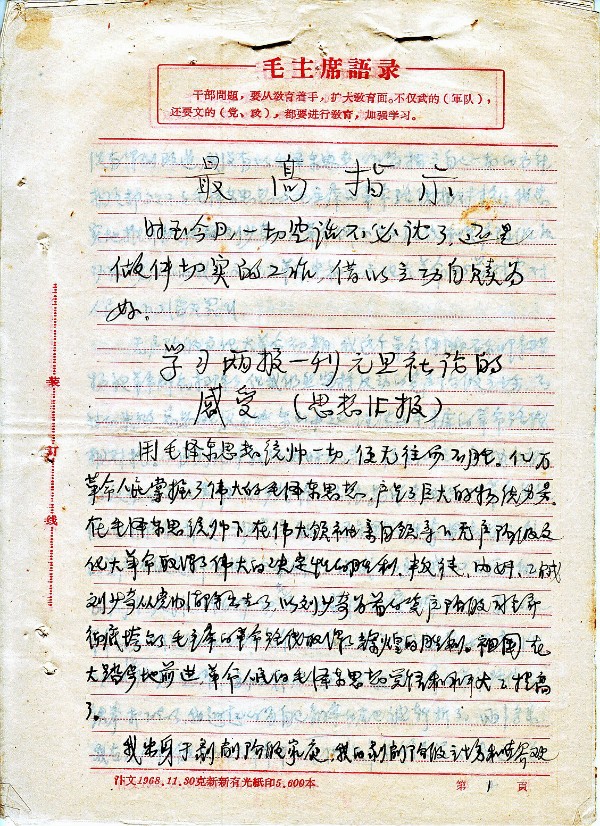 毛主席語录
干部問題，要从敎育着手，扩大敎育面。不仅武的（軍队），
还要文的（党、政），都要进行敎育，加强学习。
最高指示
时至今日，一切空话不必说了，还是
做件切实的工作，借以立功自赎为
好。
学习两报一刊元旦社论的
感受（思想汇报）
用毛泽东思想统帅一切，便无往而不胜。亿万
革命人民掌握了伟大的毛泽东思想，产生了巨大的物质力量。
在毛泽东思想统帅下，在伟大领袖的亲自领导下，无产阶级文
化大革命取得了伟大的决定性的胜利。叛徒、内奸、工贼
刘少奇从党内清除出去了，以刘少奇为首的资产阶级司令部
彻底垮台了，毛主席的革命路线取得了辉煌的胜利。祖国在
大踏步地前进，革命人民的毛泽东思想觉悟大大提高
了。
我出身于剥削阶级家庭，我的剥削阶级世界观
装
訂
线
汴文1968.11.30克新新有光紙印5,600本
第 1 頁